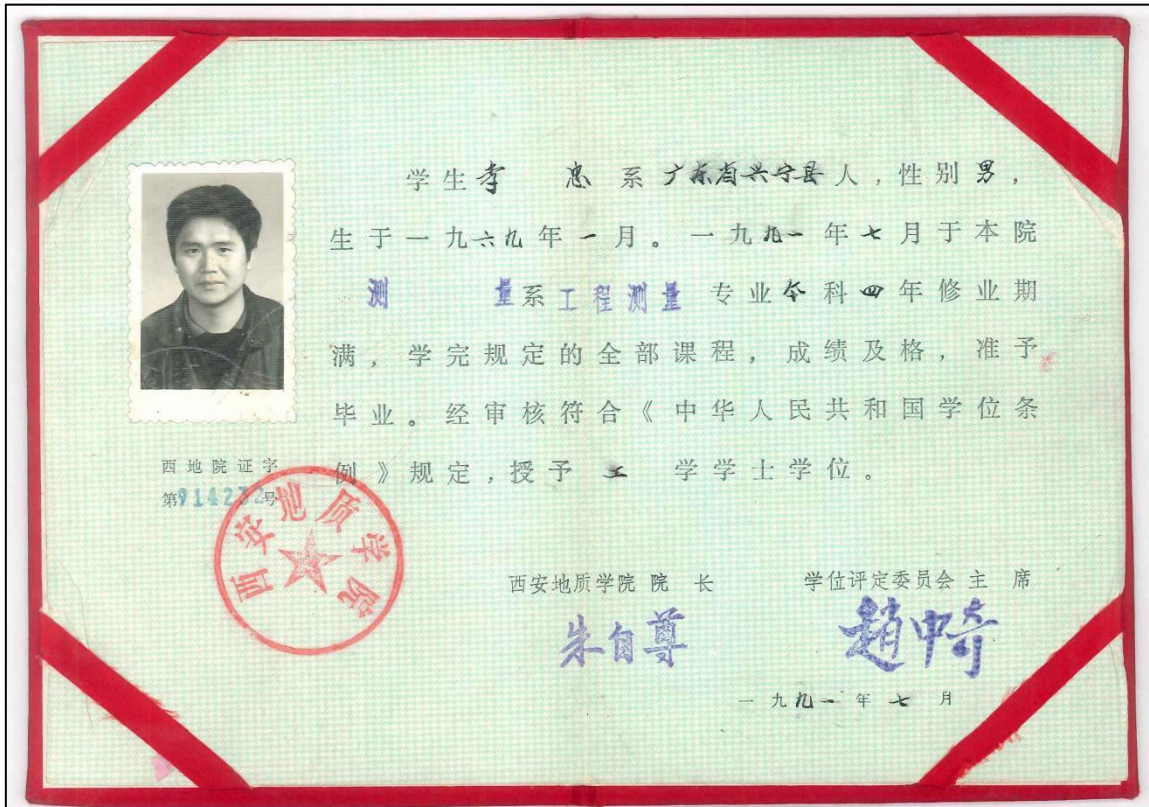 学生李 忠 系 广东省兴宁县人,性别男,
生于一九六九年一月。一九九一年七月于本院
测 量系工程测量 专业本科四年修业期
满,学完规定的全部课程,成绩及格,准予
毕业。经审核符合《中华人民共和国学位条
例》规定,授予 工 学学士学位。
西地院证字
第914232号
西安地质学院
西安地质学院 院 长
朱自尊
学位评定委员会 主 席
趙中奇
一九九一年七月